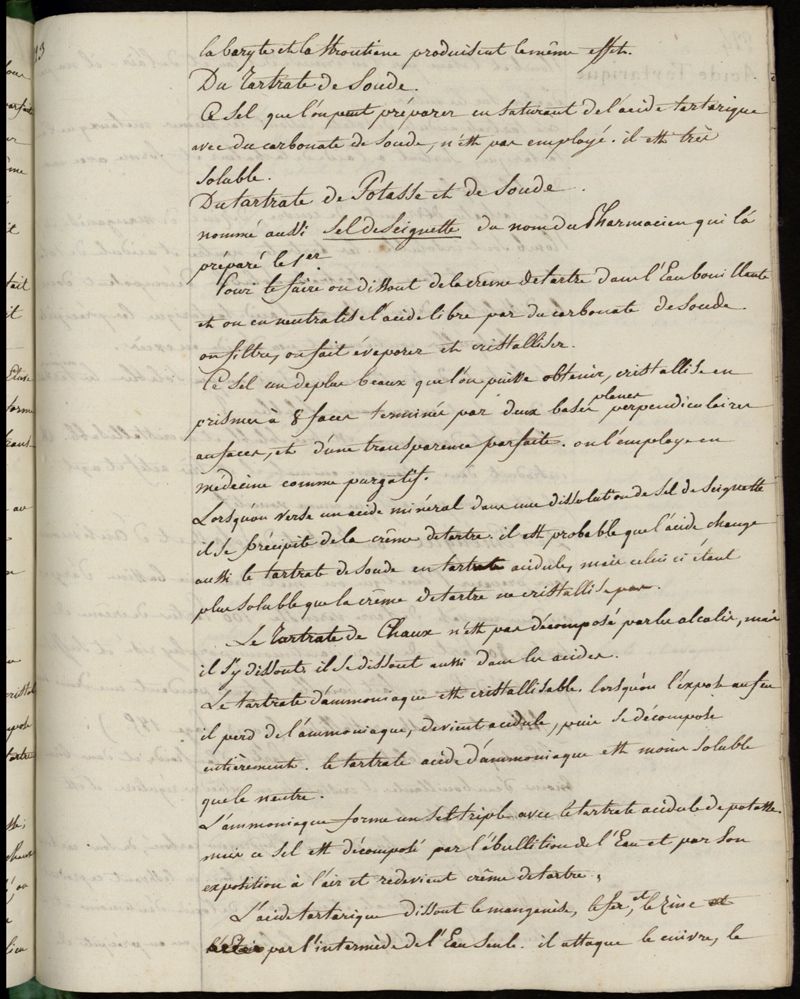 la baryte et la Strontiane produisent le même effet.
Du Tartrate de Soude.
Ce Sel que l'on peut préparer en saturant de l'acide tartarique
avec du carbonate de soude, n'est pas employé. il est très
soluble.
Du tartrate de Potasse et de Soude.
nommé aussi Sel de Seignette du nom du Pharmacien qui l'a
préparé le 1er
Pour le faire on dissout de la crême de tartre dans l'Eau bouillante
et on en neutralise l'acide libre par du carbonate de Soude.
on filtre, on fait évaporer et cristalliser.
Ce Sel un des plus beaux que l'on puisse obtenir, cristallise en
prismes à 8 faces terminés par deux bases planes perpendiculaires
aux faces, et d'une transparence parfaite. on l'employe en
médecine comme purgatif.
Lorsqu'on verse un acide minéral dans une dissolution de Sel de Seignette
il se précipite de la crême de tartre. il est probable que l'acide change
aussi le tartrate de soude en tartrate acidule, mais celui ci étant
plus soluble que la crême de tartre ne cristallise pas.
Le Tartrate de Chaux n'est pas décomposé par les alcalis, mais
il s'y dissout, il se dissout aussi dans les acides.
Le tartrate d'ammoniaque est cristallisable. lorsqu'on l'expose au feu
il perd de l'ammoniaque, devient acidule, puis se décompose
entièrement. le tartrate acide d'ammoniaque est moins soluble
que le neutre.
L'ammoniaque forme un Sel triple avec le tartrate acidule de potasse.
mais ce Sel est décomposé par l'ébullition de l'Eau et par son
exposition à l'air et redevient crême de tartre,
L'acide tartarique dissout le manganèse, le fer, et le zinc
par l'intermède de l'Eau seule. il attaque le cuivre, le